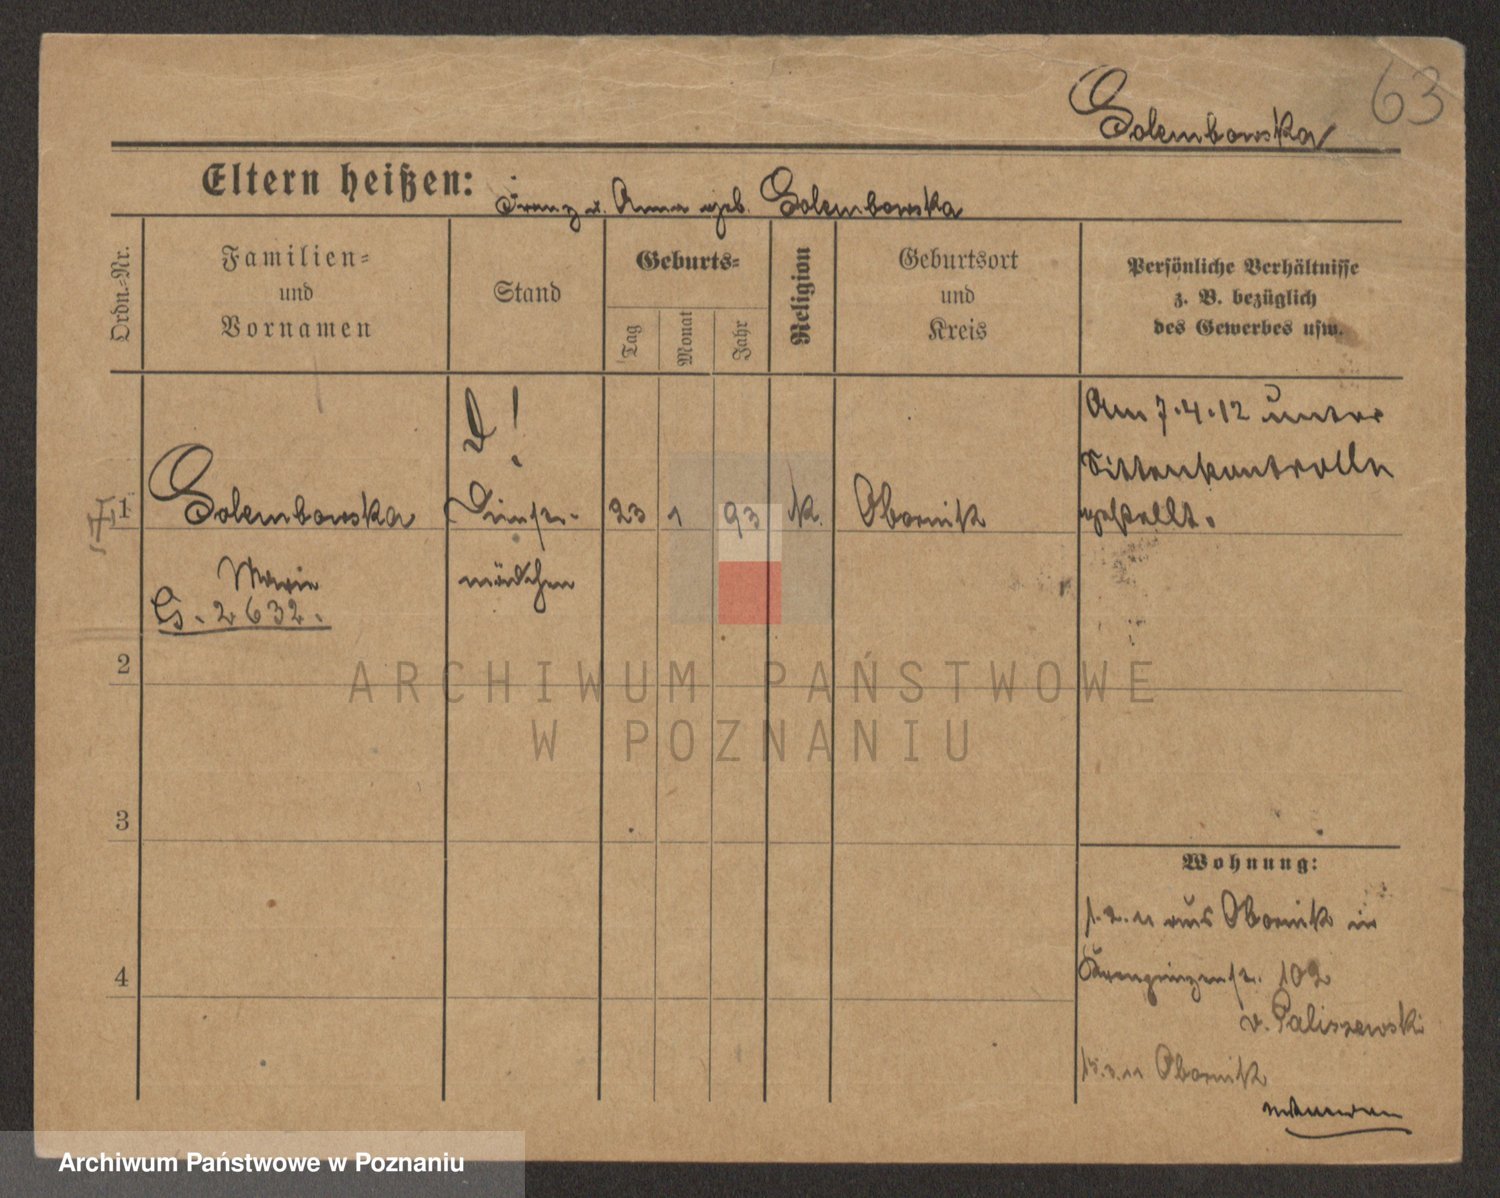 63
Golembowska
Eltern heißen: Franz u. Anna geb. Golembowska
Ordn.-Nr.
Familien- und Vornamen
Stand
Geburts-
Tag
Monat
Jahr
Religion
Geburtsort und Kreis
Persönliche Verhältnisse
z. B. bezüglich
des Gewerbes usw.
D!
Am 7.4.12 unter
Sittenkontrolle
gestellt.
1 Golembowska Dienst- 23 1 93 k. Obornik
Marie mädchen
G. 2632.
2
3
4
Wohnung:
1.2.11 aus Obornik in
Kronprinzenstr. 102
v. Paliszewski
15.3.11 Obornik
ARCHIWUM PAŃSTWOWE
W POZNANIU
Archiwum Państwowe w Poznaniu